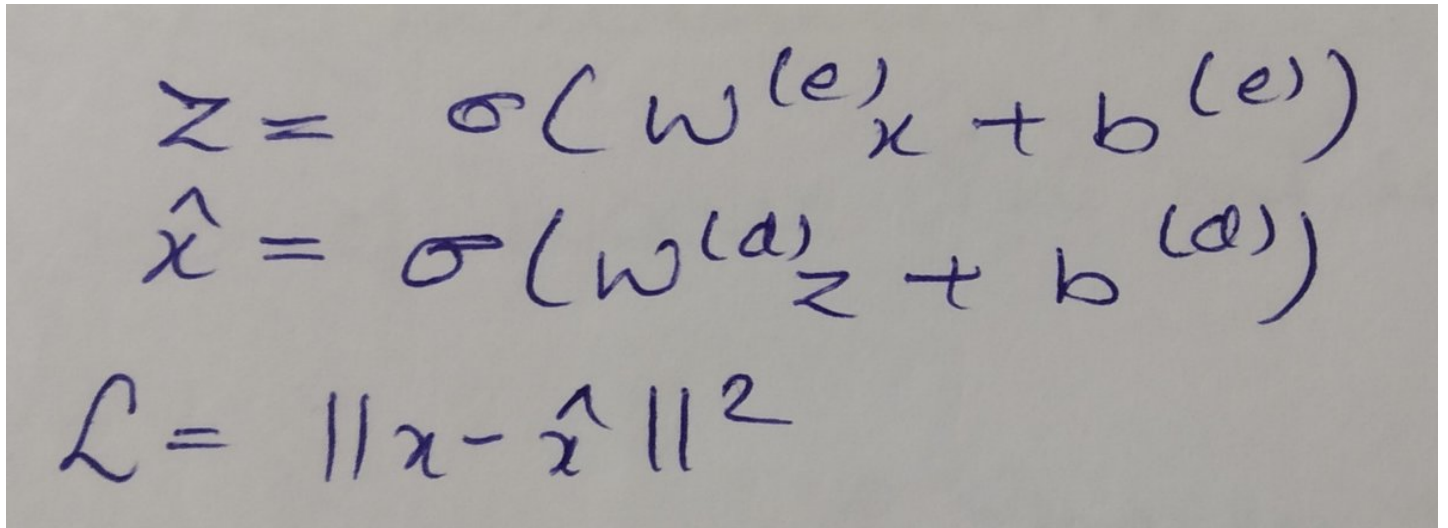 z = σ(W^(e)x + b^(e))
x̂ = σ(W^(d)z + b^(d))
ℒ = ||x - x̂||^2